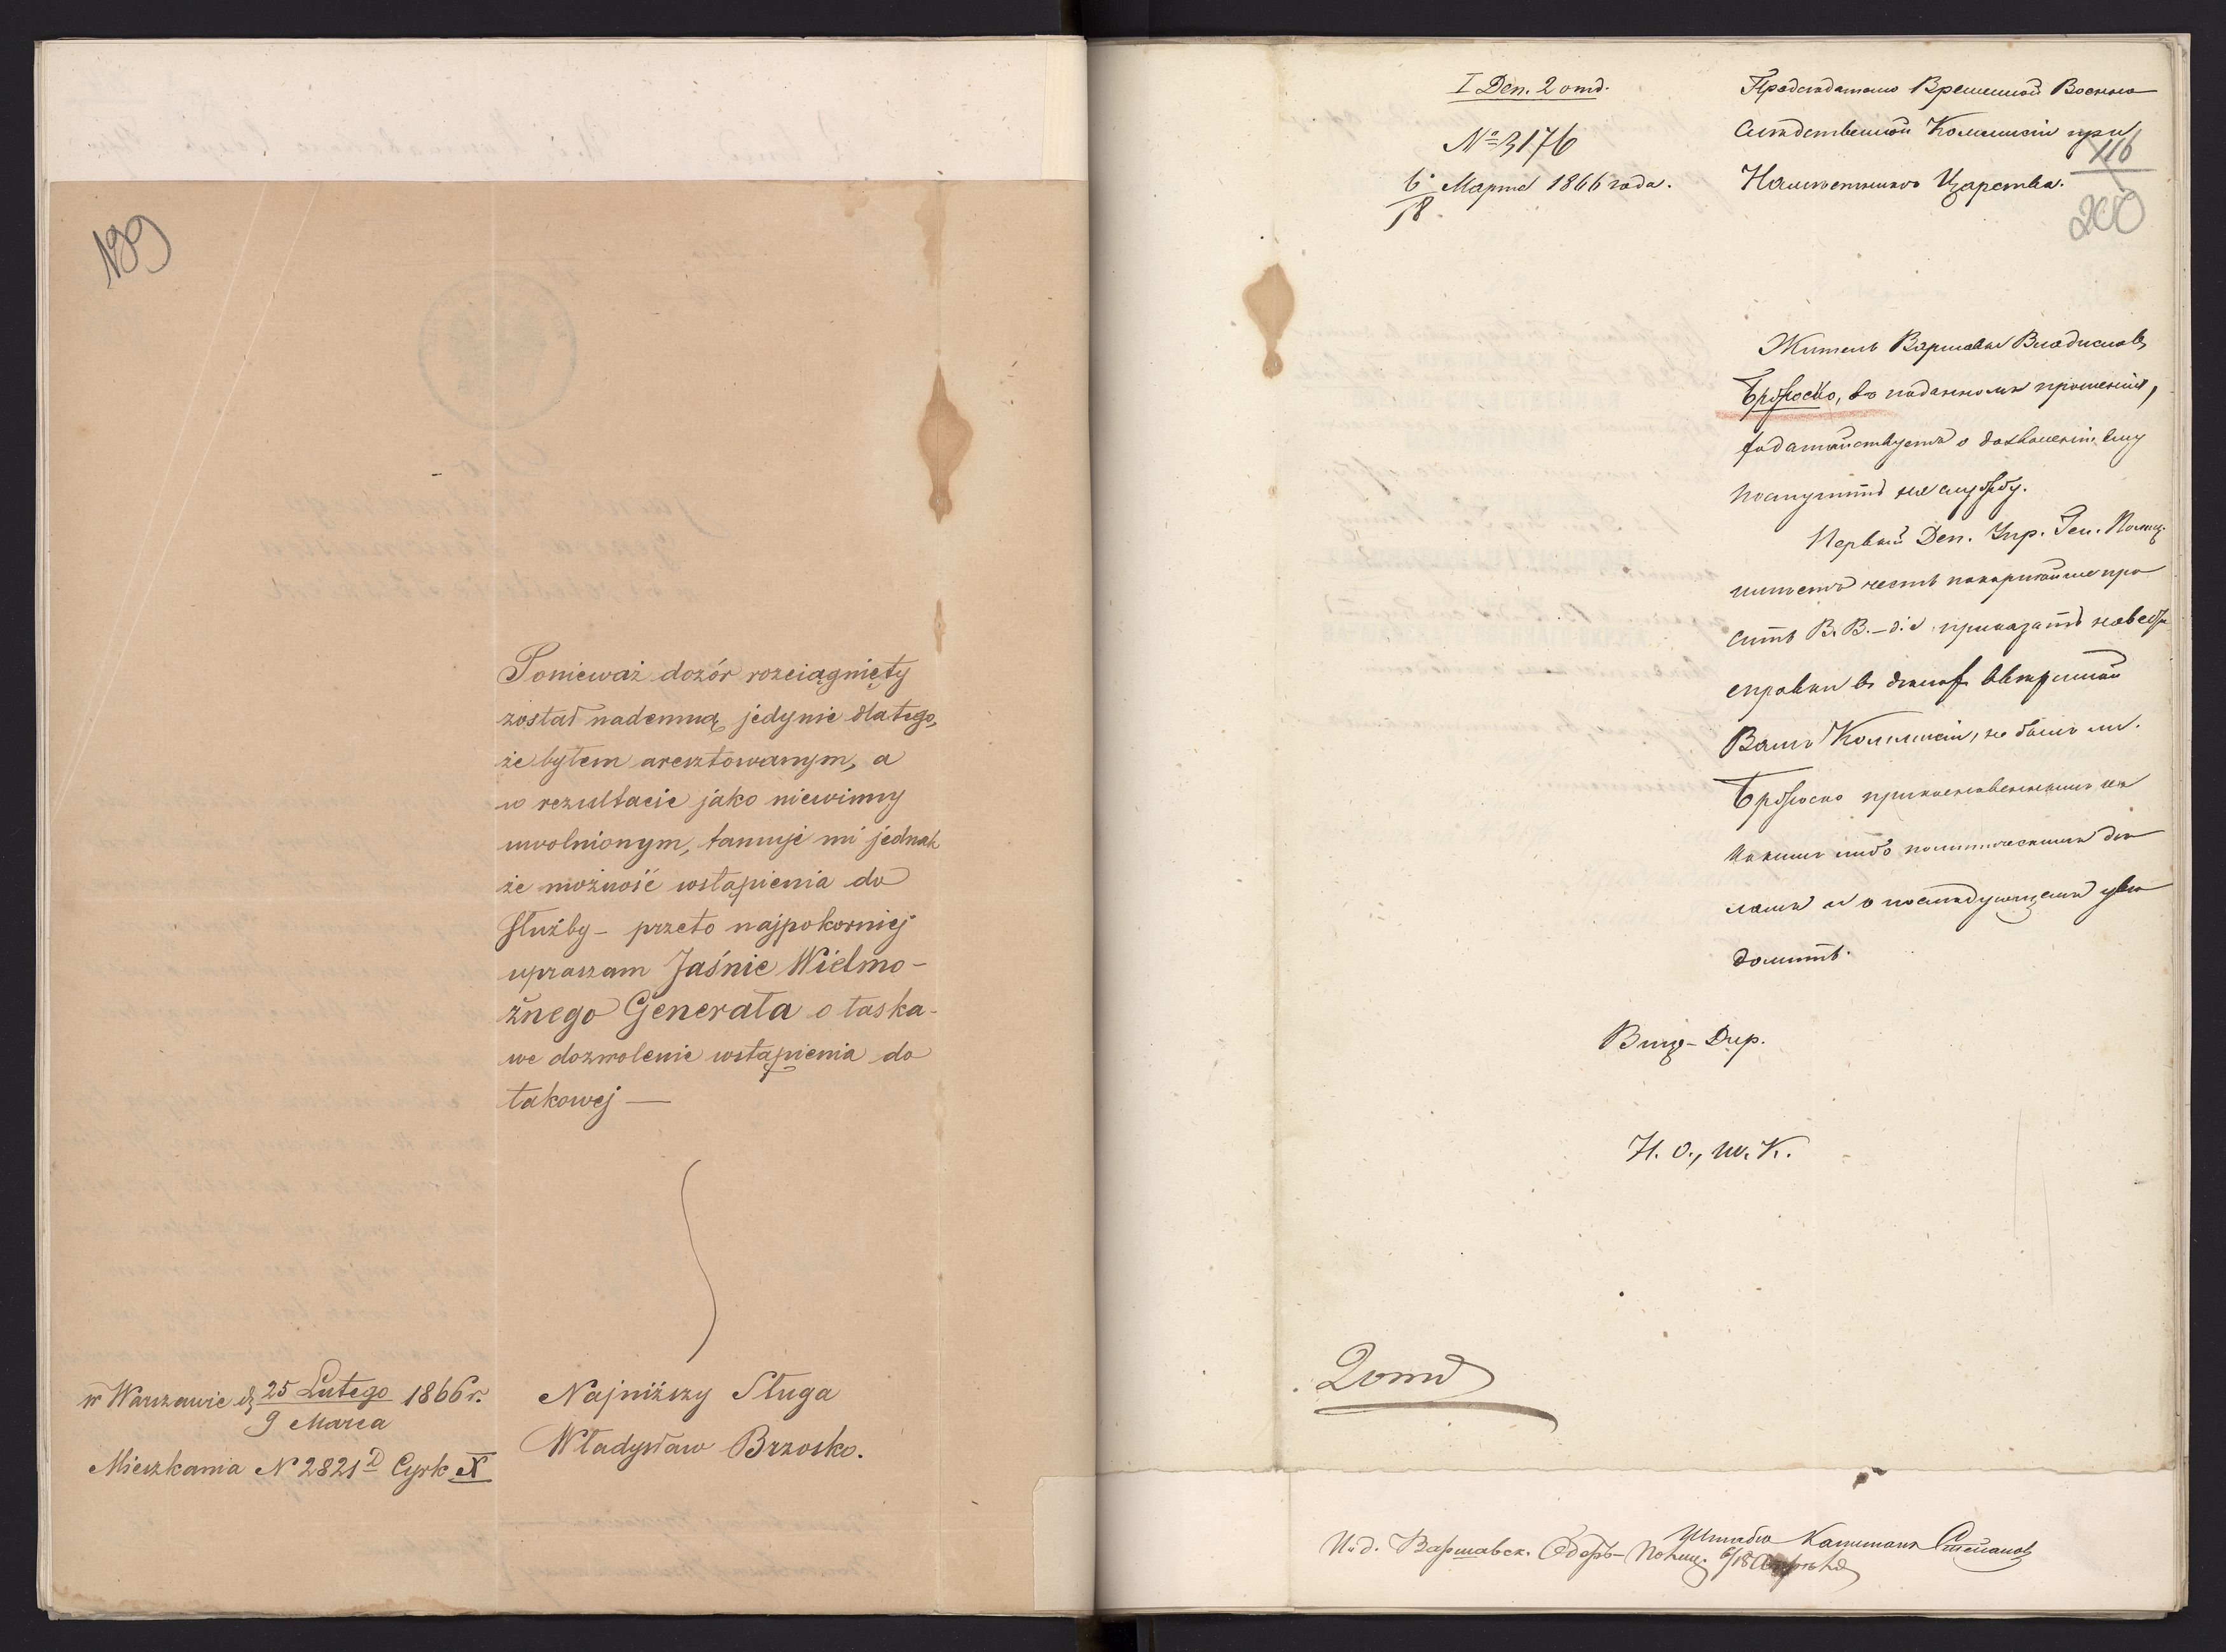 199
Ponieważ dozór rozciągnięty
został nademną jedynie dla tego,
że byłem aresztowanym, a
w rezultacie jako niewinny
uwolnionym, tamuje mi jednak
że możność wstąpienia do
służby – przeto najpokorniej
upraszam Jaśnie Wielmo-
żnego Generała o łaska-
we dozwolenie wstąpienia do
takowej —
w Warszawie d. 25 Lutego 1866 r.
9 Marca
Mieszkania N 2821 D Cyrk X
Najniższy Sługa
Władysław Brzosko.
I Деп. 2 отд.
№ 3176
6 Марта 1866 года.
18
Председателю Временной Военно
Следственной Коммисіи при
Намѣстникѣ Царства.
116
200
Житель Варшавы Владиславъ
Бржоско, въ поданномъ прошеніи,
ходатайствуетъ о дозволеніи ему
поступить на службу.
Первый Деп. Упр. Ген. Полиц.
имѣетъ честь покорнѣйше про
сить В. В.–діе приказать навести
справки въ дѣлахъ ввѣренной
Вамъ Коммисіи, не былъ ли
Бржоско прикосновеннымъ къ
какимъ либо политическимъ дѣ
ламъ и о послѣдующемъ уве
домить.
Вице-Дир.
Н. О., ш. К.
2 отд
И. д. Варшавск. Оберъ-Полиц. Штабсъ Капитанъ
6/18